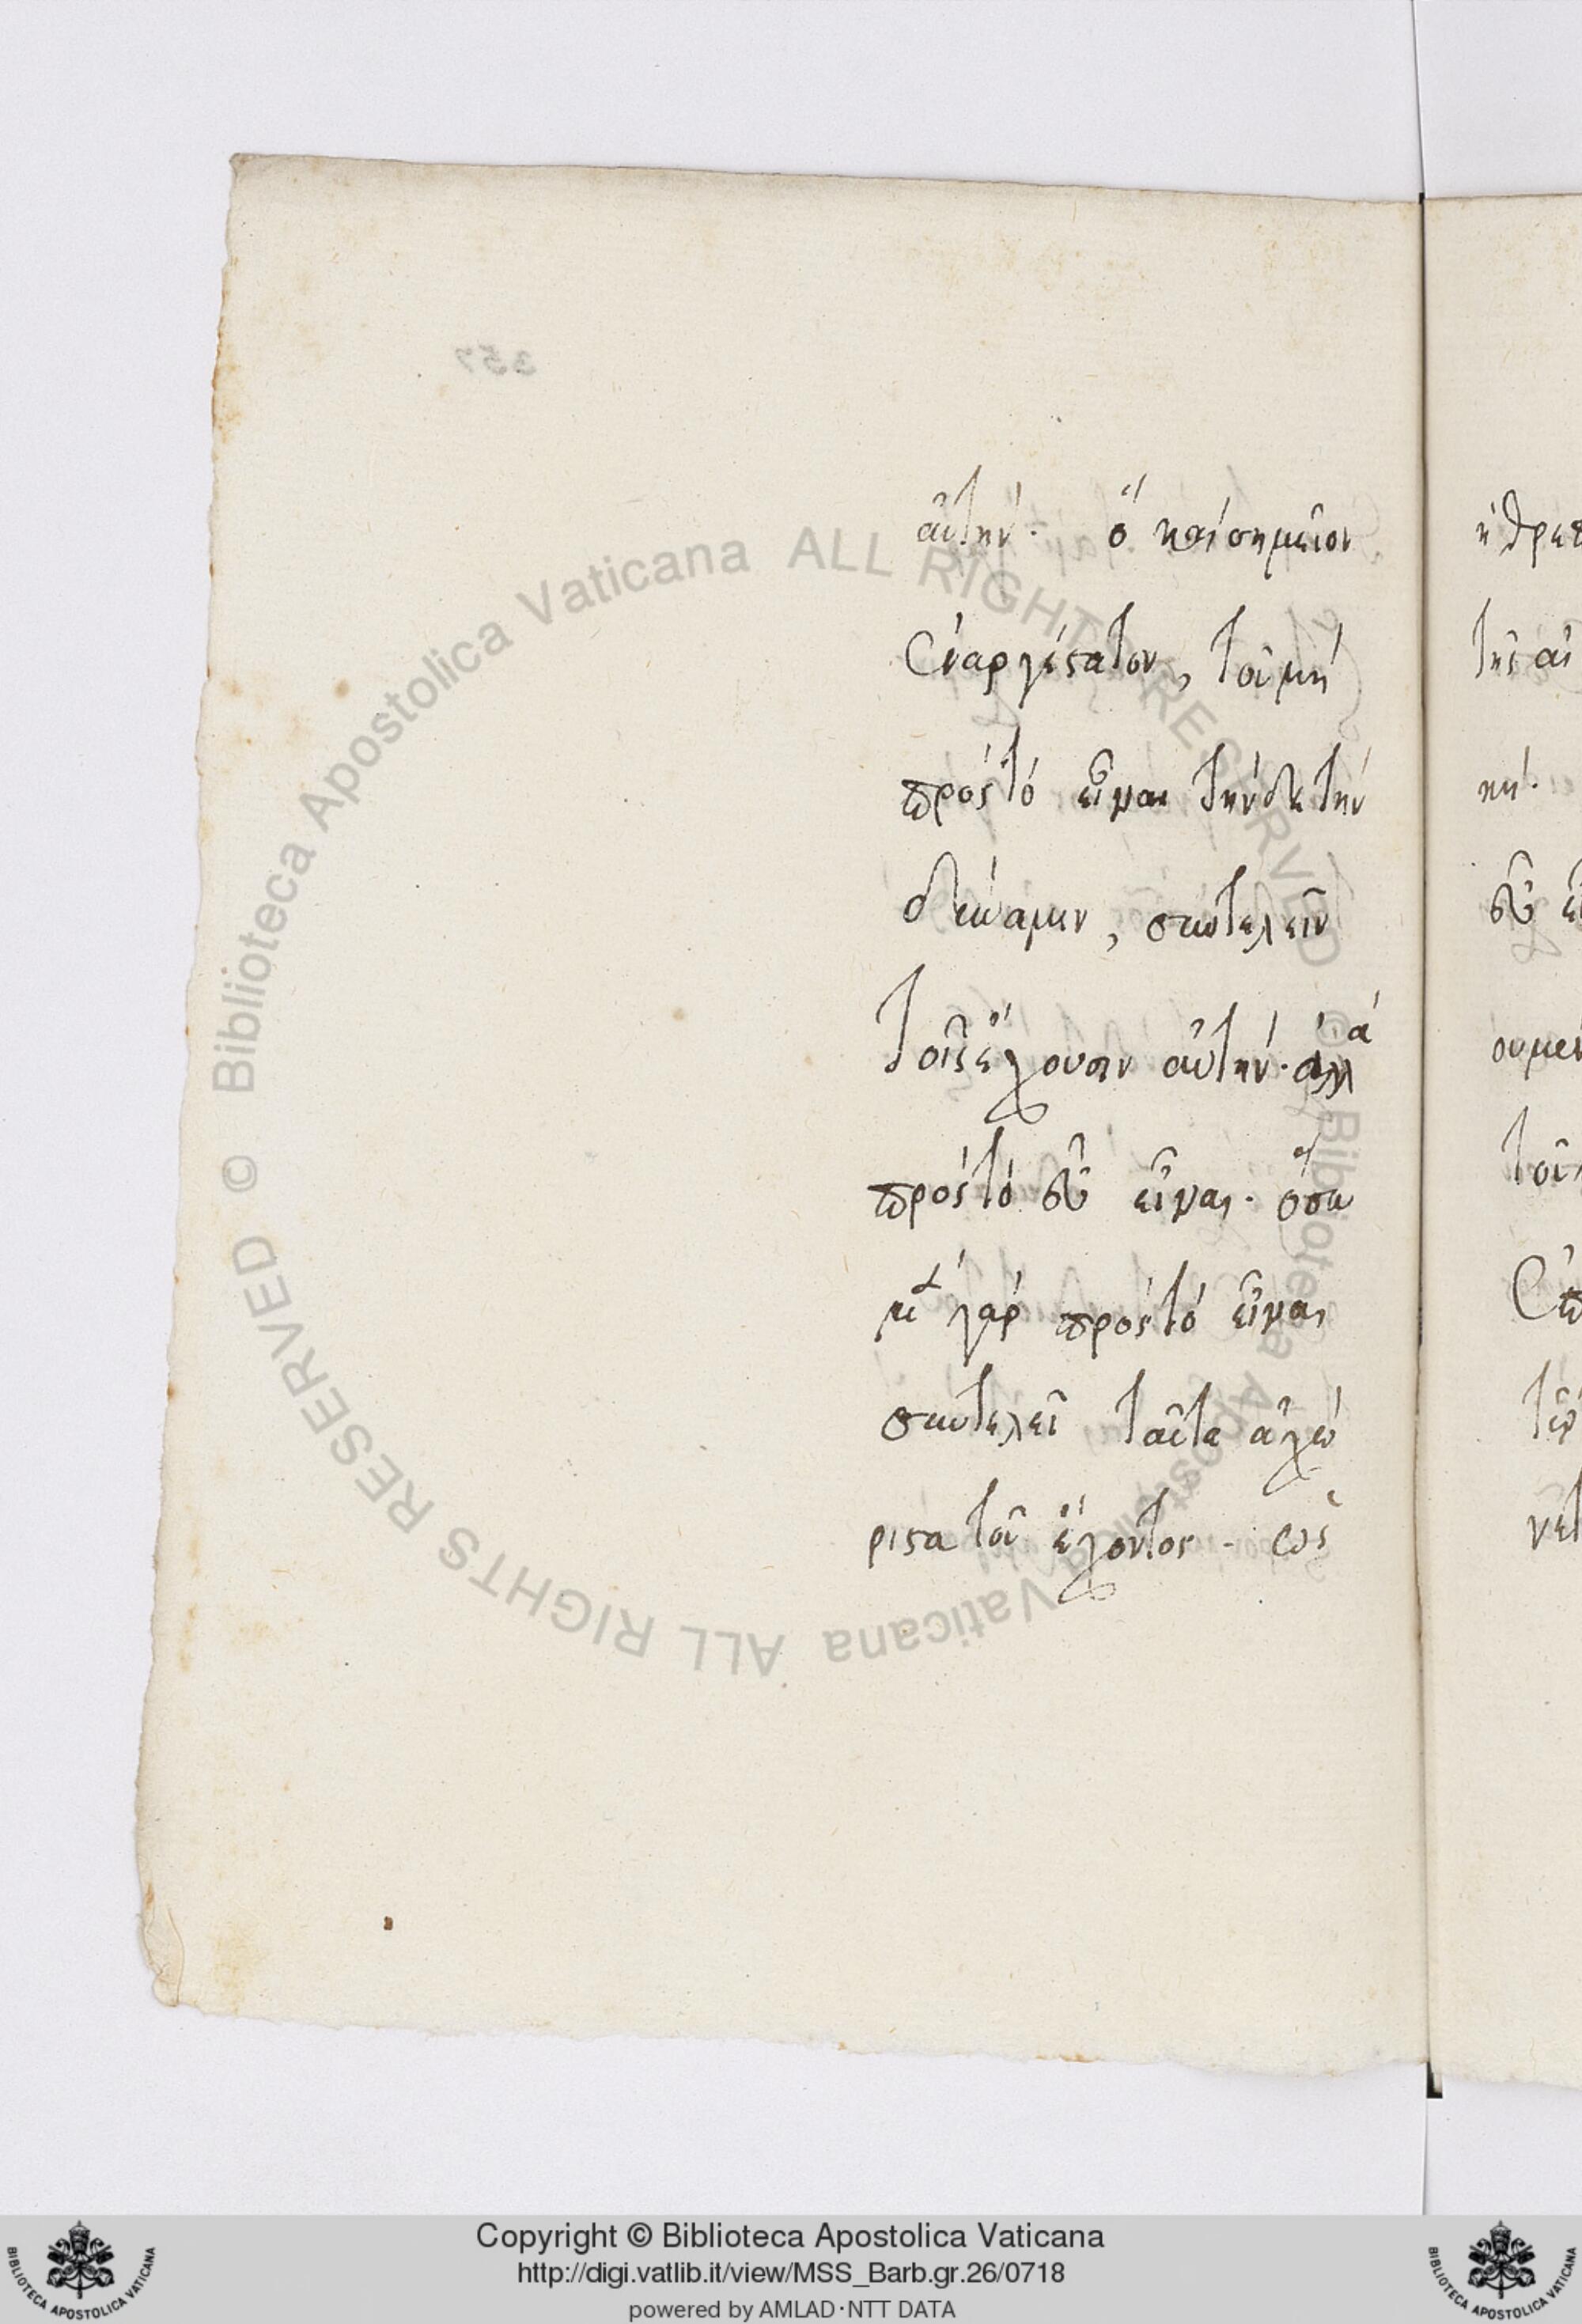 357
αὐτήν. ὅ καὶ σημεῖον
ἐναργέστατον, τοῦ μὴ
πρὸς τὸ εἶναι τήνδε τὴν
δύναμιν, συντελεῖν
τοῖς ἔχουσιν αὐτήν. ἀλλὰ
πρὸς τὸ εὖ εἶναι. ὅσα
μὲν γὰρ πρὸς τὸ εἶναι
συντελεῖ ταῦτα ἀχώ
ριστα τοῦ ἔχοντος. ὡς
ἡ θρεπ
τῆς αὐ
κή.
εὖ εἶ
ουμεν
τοῦ
νετ
© Biblioteca Apostolica Vaticana ALL RIGHTS RESERVED © Biblioteca Apostolica Vaticana ALL RIGHTS RESERVED
Copyright © Biblioteca Apostolica Vaticana
http://digi.vatlib.it/view/MSS_Barb.gr.26/0718
powered by AMLAD·NTT DATA
BIBLIOTECA APOSTOLICA VATICANA
BIBLIOTECA APOSTOLICA VATICANA